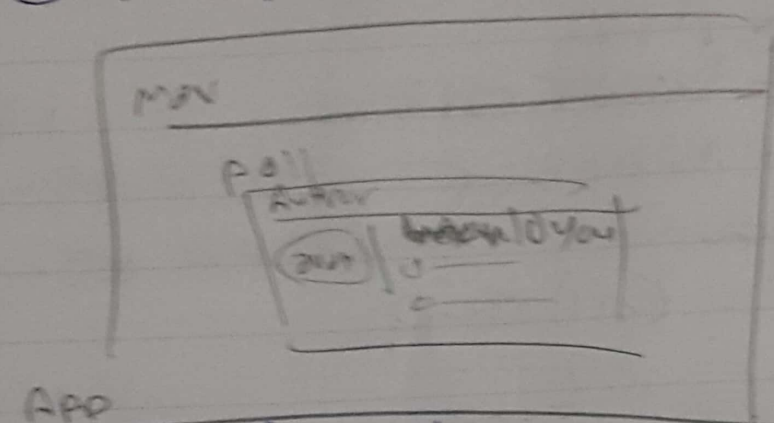 Nav
Poll
Author
would you
App